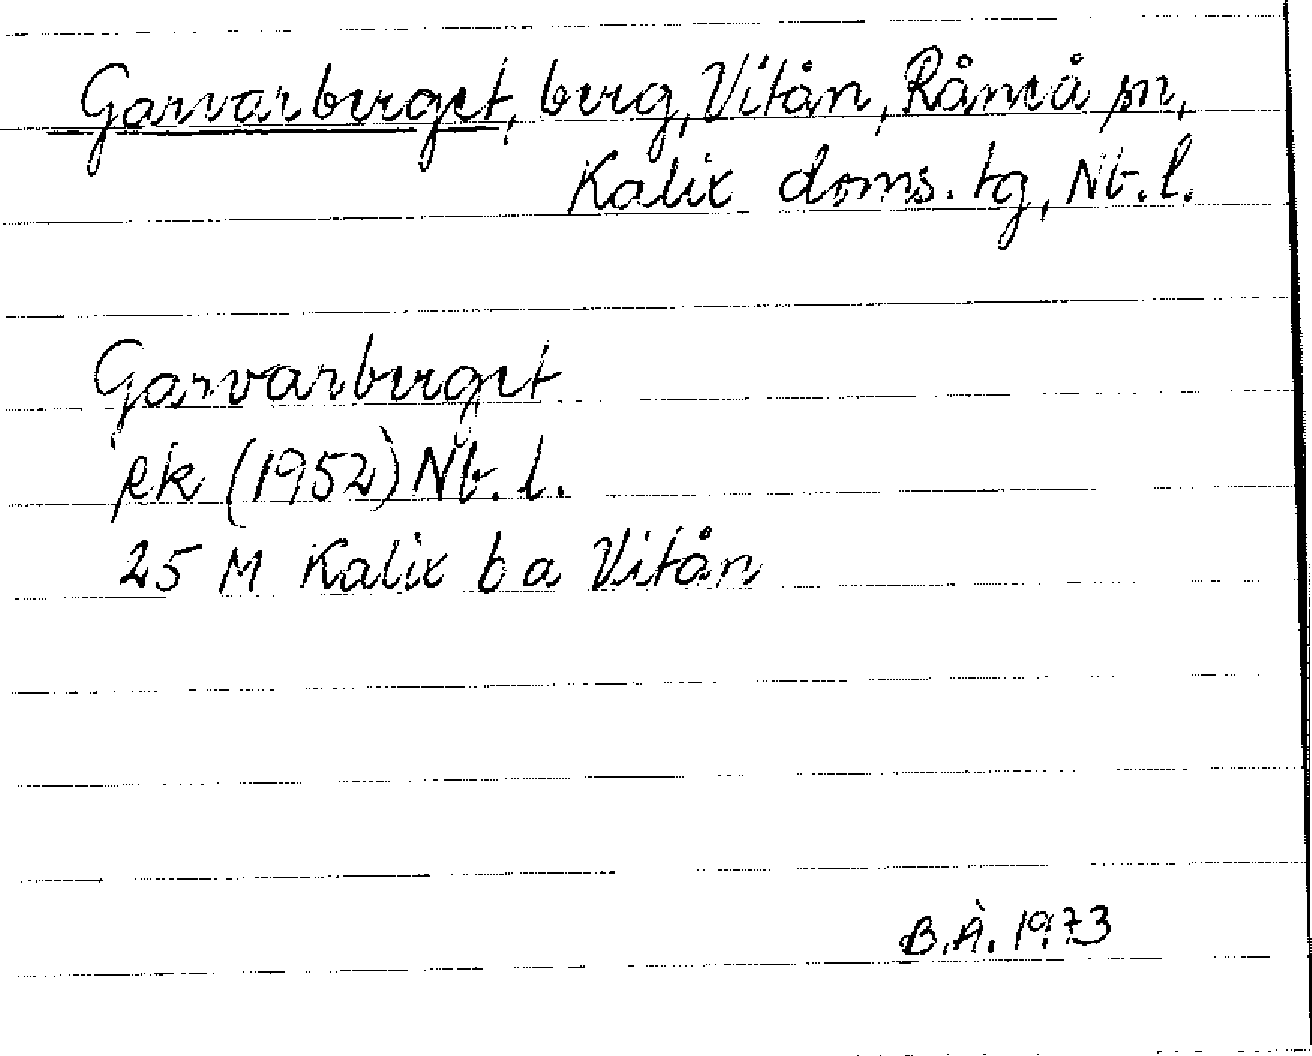 Garvarberget, berg, Vitån, Råneå sn,
Kalix doms. tg, Nb. l.
Garvarberget
ek (1952) Nb. l.
25 M Kalix b a Vitån
B.Å. 1973